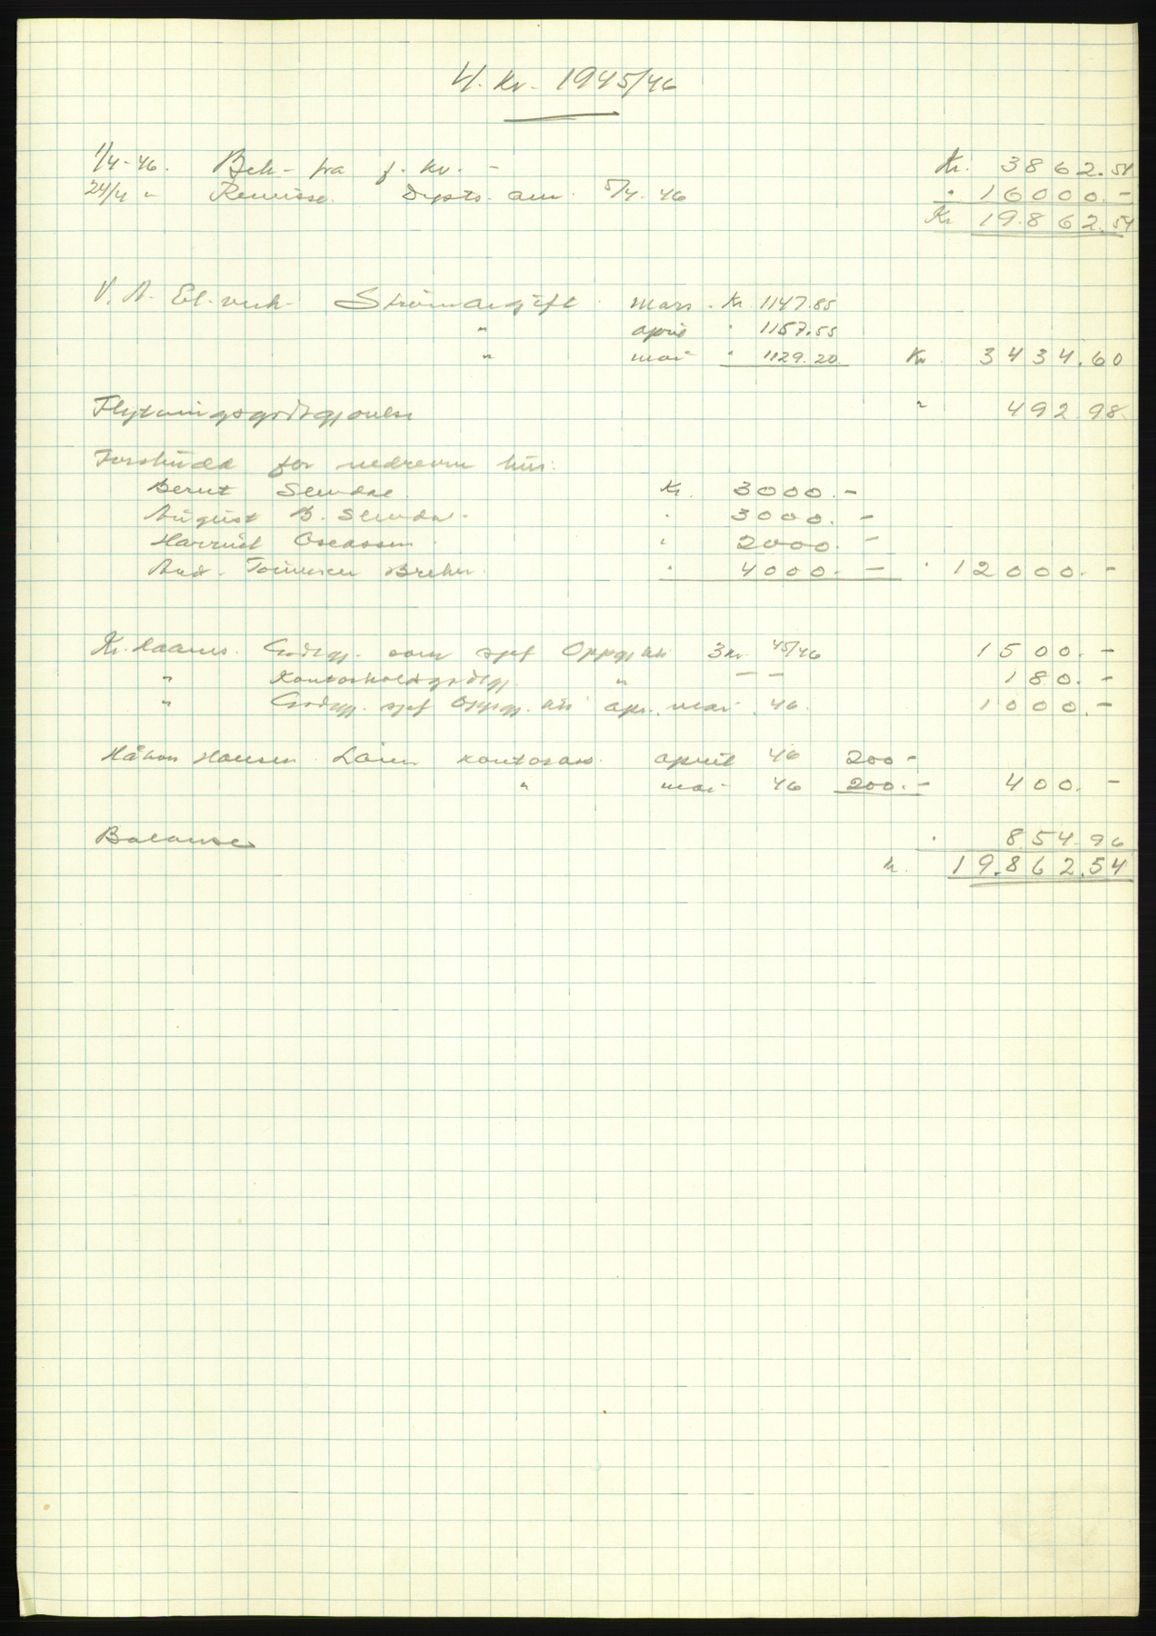 4. kv. 1945/46
1/4-46. Beh. fra f. kv. - Kr. 3862.54
24/4 " Remisse. Dpsts. anv. 5/4. 46 " 16000.-
Kr. 19.862.54
V. A. El. verk. Strömavgift mars. Kr. 1147.85
" april " 1157.55
" mai " 1129.20 Kr. 3434.60
Flytningsgodtgjørelse " 492.98
Forskudd for nedrevne hus.
Bernt Kr. 3000.-
August B. " 3000.-
" 2000.-
And. " 4000.- " 12000.-
Kr. Godtgj. som sjef Oppgj. kti 3 kv. 45/46 1500.-
" Kontorholdsgodtgj. " - - 180.-
" Godtgj. sjef Oppgj. kti apr. mai 46. 1000.-
Håkon Hansen Lønn kontorass. april 46 200-
" mai 46 200.- 400.-
Balanse " 854.96
kr. 19.862.54